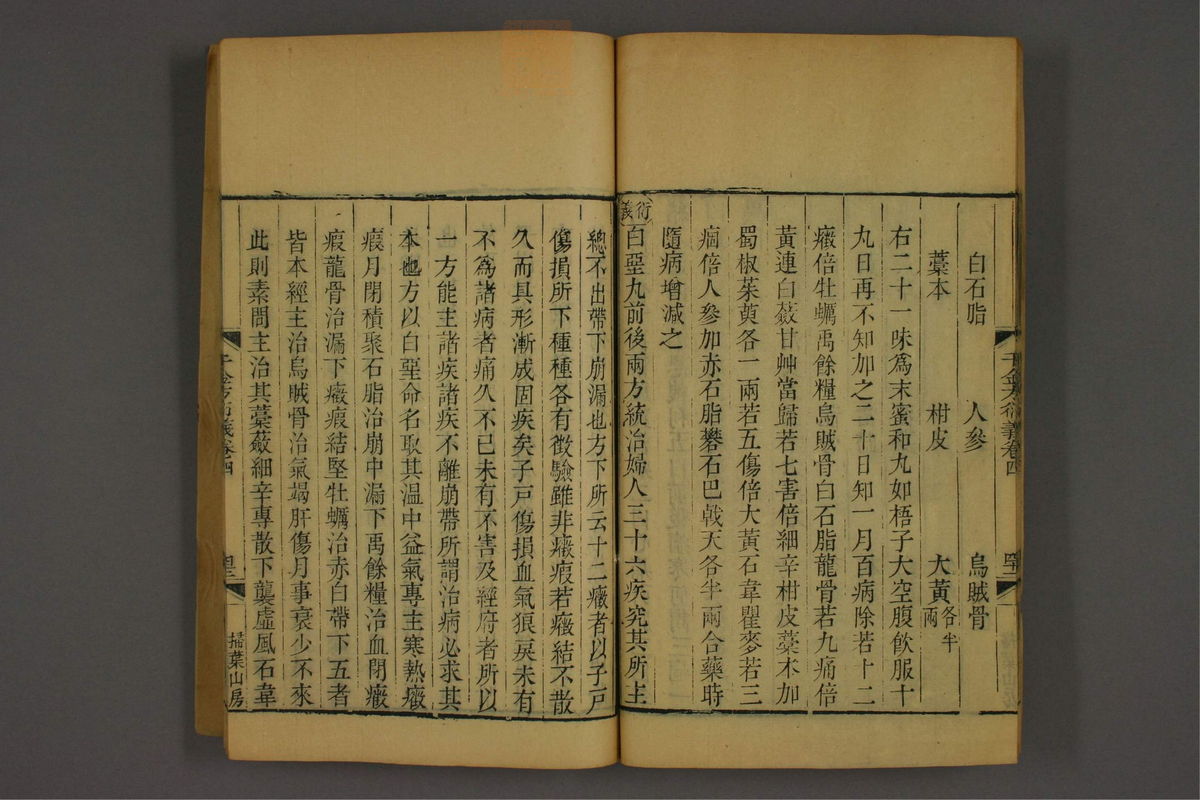 白石脂 人參 烏賊骨
藁本 柑皮 大黃各半兩
右二十一味爲末蜜和丸如梧子大空腹飲服十
丸日再不知加之二十日知一月百病除若十二
癥倍牡蠣禹餘糧烏賊骨白石脂龍骨若九痛倍
黃連白蘞甘艸當歸若七害倍細辛柑皮藁本加
蜀椒茱萸各一兩若五傷倍大黃石韋瞿麥若三
痼倍人參加赤石脂礬石巴戟天各半兩合藥時
隨病增減之
衍義白堊丸前後兩方統治婦人三十六疾究其所主
總不出帶下崩漏也方下所云十二癥者以子戸
傷損所下種種各有徵驗雖非癥瘕若癥結不散
久而具形漸成固疾矣子戸傷損血氣狠戾未有
不爲諸病者痛久不已未有不害及經府者所以
一方能主諸疾諸疾不離崩帶所謂治病必求其
本也方以白堊命名取其温中益氣專主寒熱癥
瘕月閉積聚石脂治崩中漏下禹餘糧治血閉癥
瘕龍骨治漏下癥瘕結堅牡蠣治赤白帶下五者
皆本經主治烏賊骨治氣竭肝傷月事衰少不來
此則素問主治其藁蘞細辛專散下襲虛風石韋
千金方衍義卷四
掃葉山房